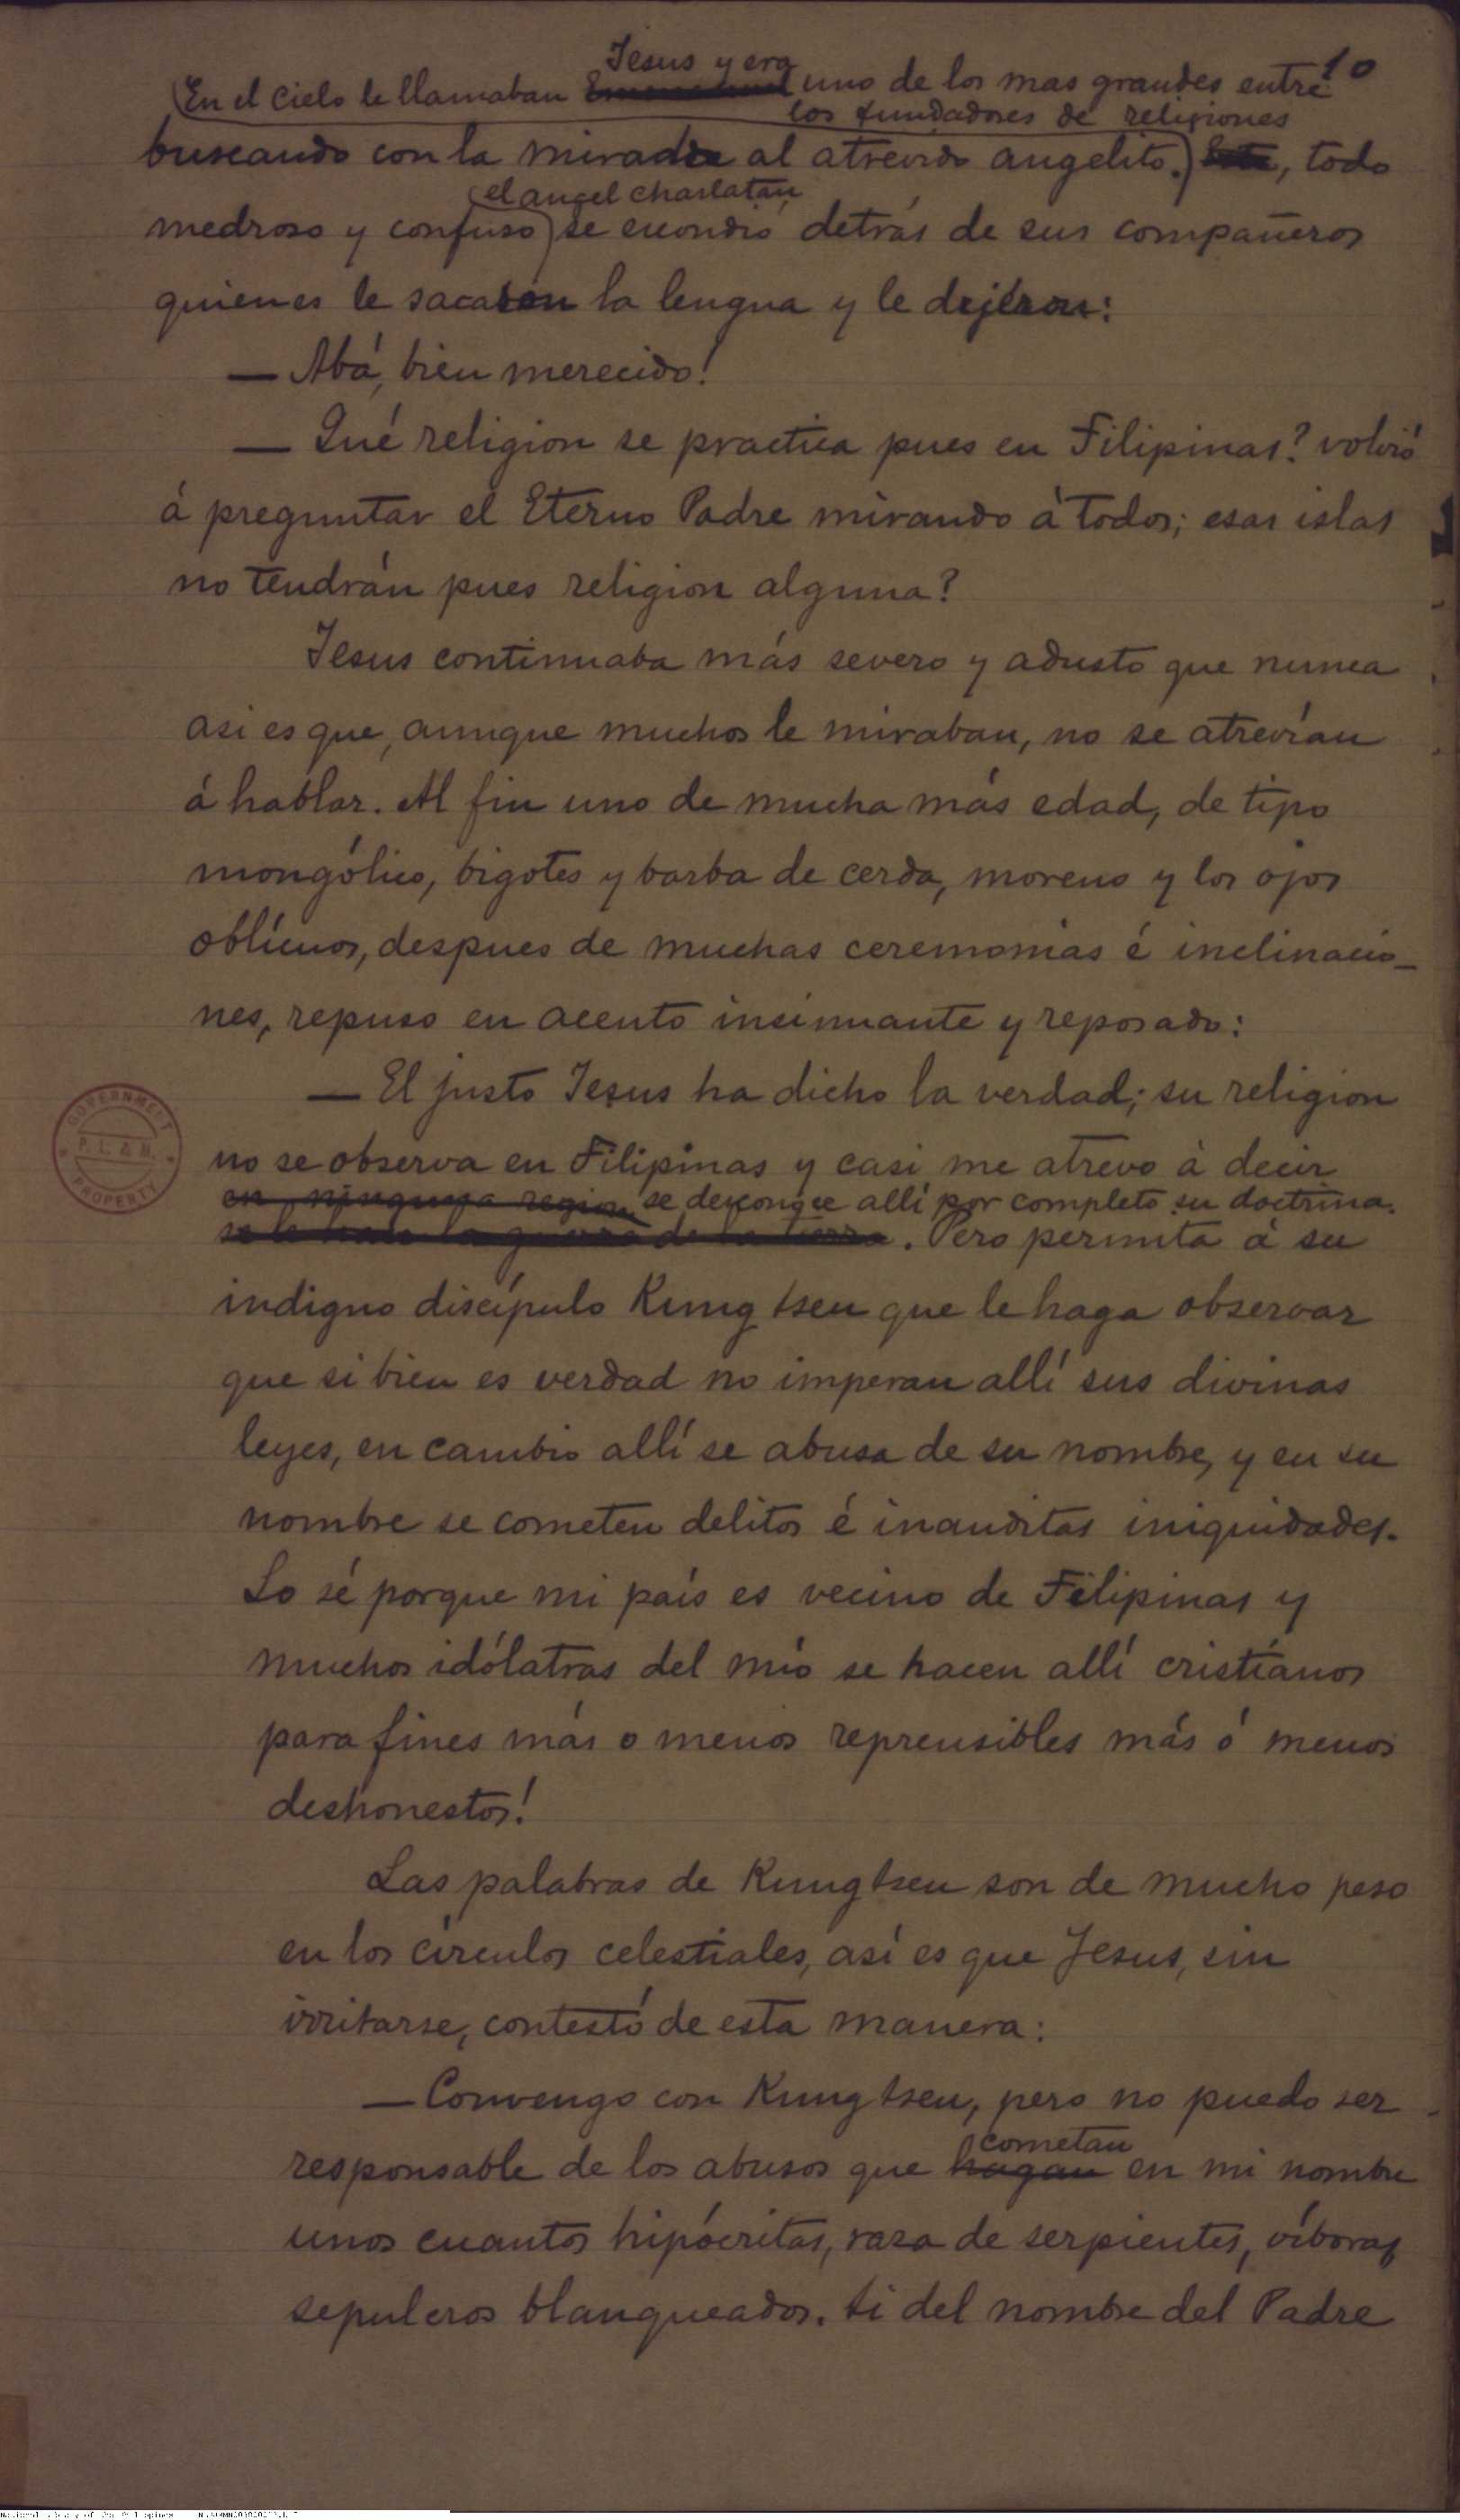 10
Jesus y era
En el cielo le llamaban uno de los mas grandes entre
los fundadores de religiones
buscando con la mirada al atrevido angelito. Este, todo
el angel charlatan
medroso y confuso se escondió detrás de sus compañeros
quienes le sacaron la lengua y le dijeron:
— Abá, bien merecido!
— Qué religion se practica pues en Filipinas? volvió
á preguntar el Eterno Padre mirando á todos; esas islas
no tendrán pues religion alguna?
Jesus continuaba más severo y adusto que nunca
asi es que, aunque muchos le miraban, no se atrevían
á hablar. Al fin uno de mucha más edad, de tipo
mongólico, bigotes y barba de cerda, moreno y los ojos
oblícuos, despues de muchas ceremonias é inclinacio-
nes, repuso en acento insinuante y reposado:
— El justo Jesus ha dicho la verdad; su religion
no se observa en Filipinas y casi me atrevo á decir
en ninguna region se desconoce allí por completo su doctrina.
se le hace la guerra de la tierra. Pero permita á su
indigno discípulo Kungtseu que le haga observar
que si bien es verdad no imperan allí sus divinas
leyes, en cambio allí se abusa de su nombre, y en su
nombre se cometen delitos é inauditas iniquidades.
Lo sé porque mi país es vecino de Filipinas y
muchos idólatras del mío se hacen allí cristíanos
para fines más o menos reprensibles más ó menos
deshonestos!
Las palabras de Kungtseu son de mucho peso
en los círculos celestiales, así es que Jesus, sin
irritarse, contestó de esta manera:
— Convengo con Kungtseu, pero no puedo ser
cometan
responsable de los abusos que hagan en mi nombre
unos cuantos hipócritas, raza de serpientes, víboras,
sepulcros blanqueados. Si del nombre del Padre
GOVERNMENT
P. L. & M.
PROPERTY